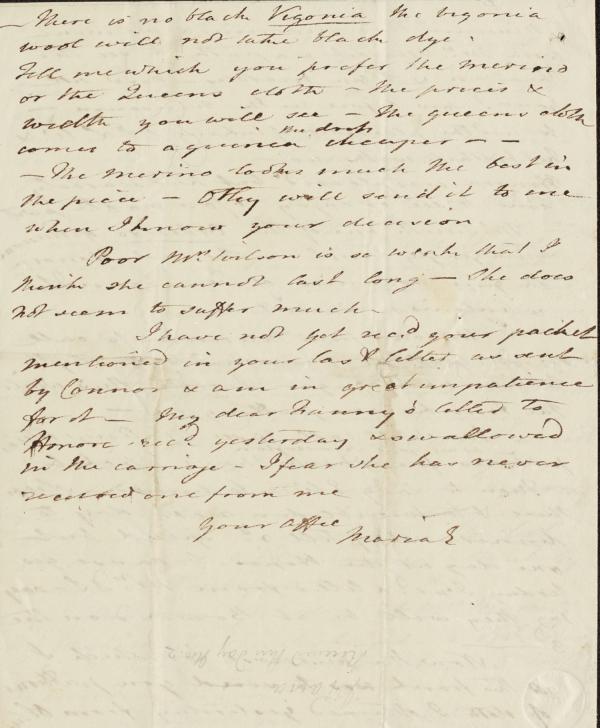 - There is no black Vigonia the vigonia
wool will not take black dye.
Tell me which you prefer the merino
or the Queens cloth - the prices &
width you will see - The queens cloth
comes to a guinea the dress cheaper - -
- The merino looks much the best in
the piece - They will send it to me
when I know your decision
Poor Mrs. Wilson is so weak that I
think she cannot last long - She does
not seem to suffer much -
I have not yet recd. your packet
mentioned in your last letter as sent
by Connor & am in great impatience
for it - My dear Fanny's letter to
Honora recd. yesterday & swallowed
in the carriage - I fear she has never
received one from me
Your affec
Maria E